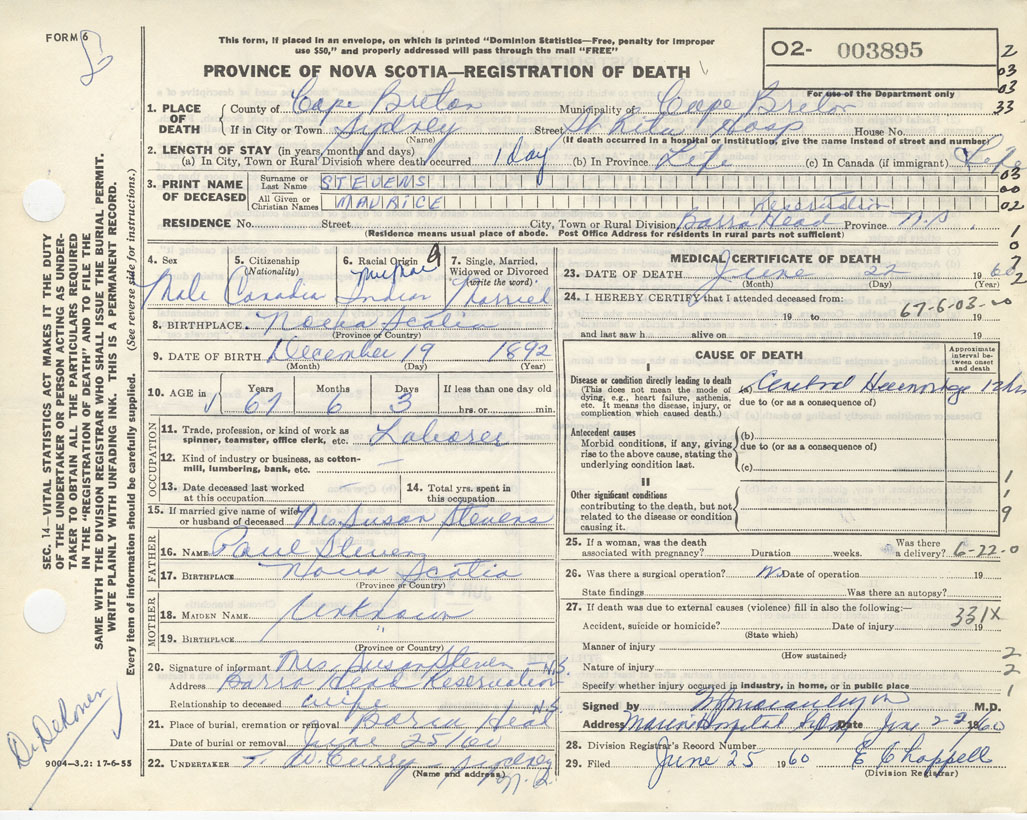 FORM 6
This form, if placed in an envelope, on which is printed "Dominion Statistics—Free, penalty for improper
use $50," and properly addressed will pass through the mail "FREE"
PROVINCE OF NOVA SCOTIA—REGISTRATION OF DEATH
O2- 003895
For use of the Department only
2
03
03
33
1. PLACE OF DEATH County of Cape Breton Municipality of Cape Breton
If in City or Town Sydney Street St. Rita Hosp House No.
(Name) (If death occurred in a hospital or institution, give the name instead of street and number)
2. LENGTH OF STAY (in years, months and days)
(a) In City, Town or Rural Division where death occurred 1 day (b) In Province Life (c) In Canada (if immigrant) Life
3. PRINT NAME OF DECEASED Surname or Last Name STEVENS 03
00
All Given or Christian Names MAURICE 02
Reservation
RESIDENCE No. Street City, Town or Rural Division Barra Head Province N.S.
(Residence means usual place of abode. Post Office Address for residents in rural parts not sufficient)
1
0
7
2
4. Sex Male
5. Citizenship (Nationality) Canadia
6. Racial Origin MicMac Indian 9
7. Single, Married, Widowed or Divorced (write the word) Married
8. BIRTHPLACE Nova Scotia
(Province or Country)
9. DATE OF BIRTH December 19 1892
(Month) (Day) (Year)
10. AGE in Years 67 Months 6 Days 3 If less than one day old hrs. or min.
OCCUPATION
11. Trade, profession, or kind of work as spinner, teamster, office clerk, etc. Laborer
12. Kind of industry or business, as cotton-mill, lumbering, bank, etc. —
13. Date deceased last worked at this occupation — 14. Total yrs. spent in this occupation
15. If married give name of wife or husband of deceased Mrs. Susan Stevens
FATHER
16. Name Paul Stevens
17. BIRTHPLACE Nova Scotia
(Province or Country)
MOTHER
18. MAIDEN NAME Unknown
19. BIRTHPLACE "
(Province or Country)
20. Signature of informant Mrs. Susan Steven
Address Barra Head Reservation N.S.
Relationship to deceased wife
21. Place of burial, cremation or removal Barra Head N.S.
Date of burial or removal June 25/60
22. UNDERTAKER T. W. Curry - Sydney
(Name and address) N.S.
MEDICAL CERTIFICATE OF DEATH
23. DATE OF DEATH June 22 1960
(Month) (Day) (Year)
24. I HEREBY CERTIFY that I attended deceased from:
19 to 19
67-6-03-0
and last saw h alive on 19
CAUSE OF DEATH
Approximate interval between onset and death
I
Disease or condition directly leading to death (a) Cerebral Haemorrhage 12 hrs
(This does not mean the mode of dying, e.g., heart failure, asthenia, etc. It means the disease, injury, or complication which caused death.)
due to (or as a consequence of)
Antecedent causes
Morbid conditions, if any, giving rise to the above cause, stating the underlying condition last.
(b)
due to (or as a consequence of)
(c)
II
Other significant conditions contributing to the death, but not related to the disease or condition causing it.
1
1
9
25. If a woman, was the death associated with pregnancy? Duration weeks. Was there a delivery? 6-22-0
26. Was there a surgical operation? No Date of operation 19
State findings Was there an autopsy?
27. If death was due to external causes (violence) fill in also the following:—
Accident, suicide or homicide? Date of injury 19
(State which)
331X
Manner of injury 2
(How sustained)
Nature of injury 2
Specify whether injury occurred in industry, in home, or in public place 1
Signed by M.D.
Address Date June 22 1960
28. Division Registrar's Record Number
29. Filed June 25 1960 E Chappell
(Division Registrar)
SEC. 14—VITAL STATISTICS ACT MAKES IT THE DUTY
OF THE UNDERTAKER OR PERSON ACTING AS UNDER-
TAKER TO OBTAIN ALL THE PARTICULARS REQUIRED
IN THE "REGISTRATION OF DEATH" AND TO FILE THE
SAME WITH THE DIVISION REGISTRAR WHO SHALL ISSUE THE BURIAL PERMIT.
WRITE PLAINLY WITH UNFADING INK. THIS IS A PERMANENT RECORD.
Every item of information should be carefully supplied. (See reverse side for instructions.)
9004—3.2: 17-6-55